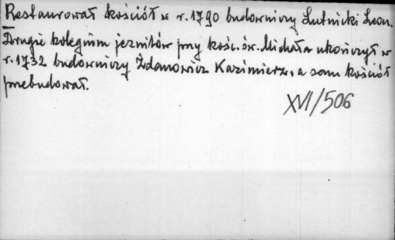 Restaurował kościół w r. 1790 budowniczy Lutnicki Leon.
Drugie kolegium jezuitów przy kośc. św. Michała ukończył w
r. 1732 budowniczy Żdanowicz Kazimierz, a sam kościół
przebudował.
XVI/506